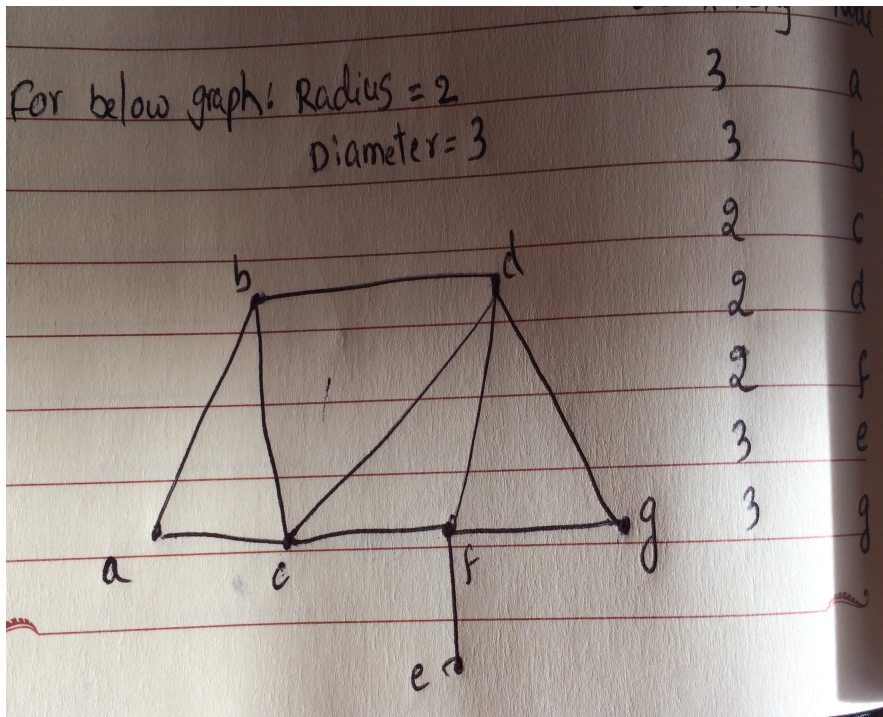 For below graph: Radius = 2
Diameter = 3
3 a
3 b
2 c
2 d
2 f
3 e
3 g
b
d
a
c
f
g
e